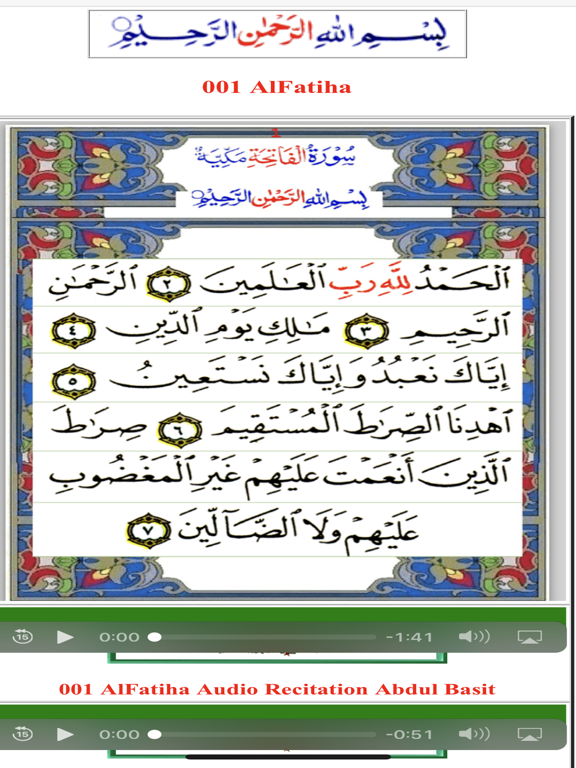 بِسْمِ اللهِ الرَّحْمٰنِ الرَّحِيْمِ
001 AlFatiha
1
سُوْرَةُ الْفَاتِحَةِ مَكِّيَّةٌ
بِسْمِ اللهِ الرَّحْمٰنِ الرَّحِيْمِ
ٱلْحَمْدُ لِلَّهِ رَبِّ ٱلْعَـٰلَمِينَ ٢ ٱلرَّحْمَـٰنِ
ٱلرَّحِيمِ ٣ مَـٰلِكِ يَوْمِ ٱلدِّينِ ٤
إِيَّاكَ نَعْبُدُ وَإِيَّاكَ نَسْتَعِينُ ٥
ٱهْدِنَا ٱلصِّرَٰطَ ٱلْمُسْتَقِيمَ ٦ صِرَٰطَ
ٱلَّذِينَ أَنْعَمْتَ عَلَيْهِمْ غَيْرِ ٱلْمَغْضُوبِ
عَلَيْهِمْ وَلَا ٱلضَّآلِّينَ ٧
15 0:00 -1:41
001 AlFatiha Audio Recitation Abdul Basit
15 0:00 -0:51